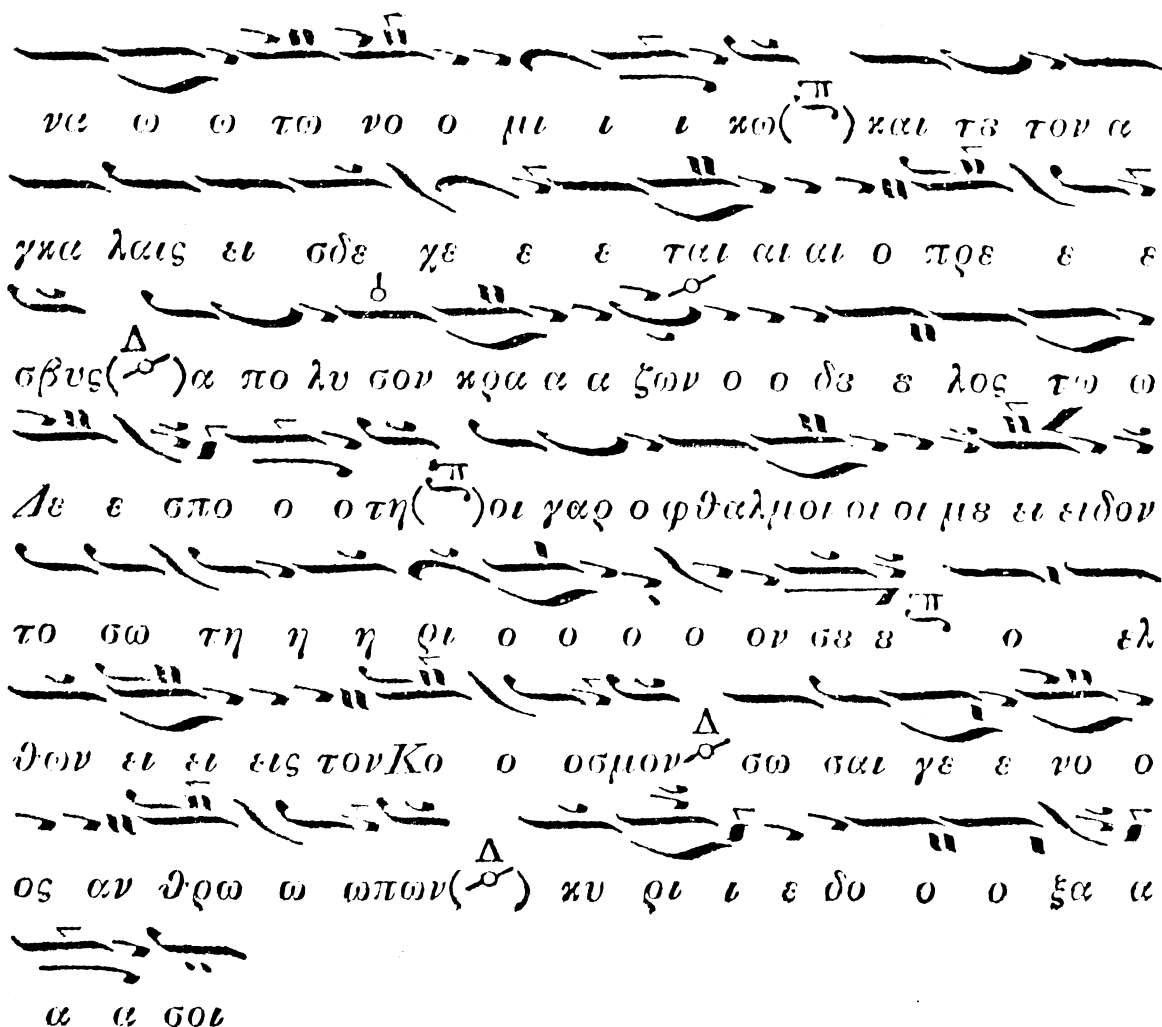 να ω ω τω νο ο μι ι ι κω(π) και τȣ τον α
γκα λαις ει σδε χε ε ε ται αι αι ο πρε ε ε
σβυς(Δ)α πο λυ σον κρα α α ζων ο ο δȣ ȣ λος τω ω
Δε ε σπο ο ο τη(π)οι γαρ ο φθαλμοι οι οι μȣ ει ειδον
το σω τη η η ρι ο ο ο ο ον σȣ ȣ π ο ελ
θων ει ει εις τον Κο ο οσμον Δ σω σαι γε ε νο ο
ος αν θρω ω ωπων(Δ) κυ ρι ι ε δο ο ο ξα α
α α σοι